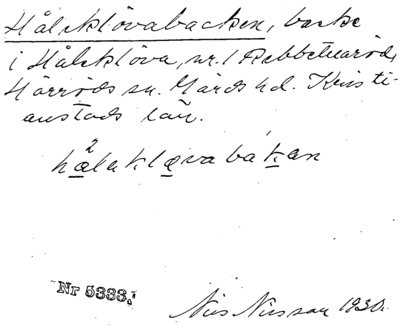 Hålaklövabacken, backe
i Hålaklöva, nr. 1 Rebbetuaröd,
Hörröds sn. Gärds hd. Kristi-
anstads län.
2
hålaklөvabakan
Nr 5333.
Nils Nilsson 1930.